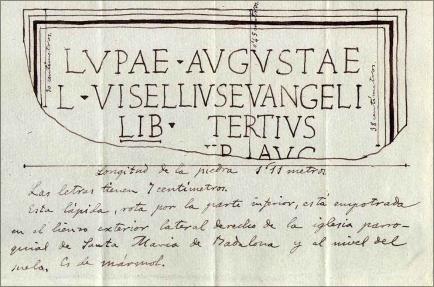 LVPAE · AVGVSTAE
L · VISELLIVS EVANGELI
LIB · TERTIVS
AVG
30 centímetros
38 centímetros
Longitud de la piedra 1'11 metros
Las letras tienen 7 centímetros.
Esta lápida, rota por la parte inferior, está empotrada
en el lienzo exterior lateral derecho de la iglesia parro-
quial de Santa María de Badalona y al nivel del
suelo. Es de marmol.